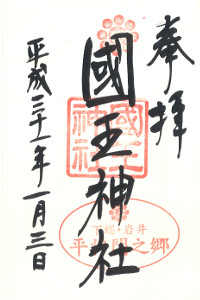 奉拝
國王神社
國王神社
下総・岩井
平将門之郷
平成二十一年一月三日